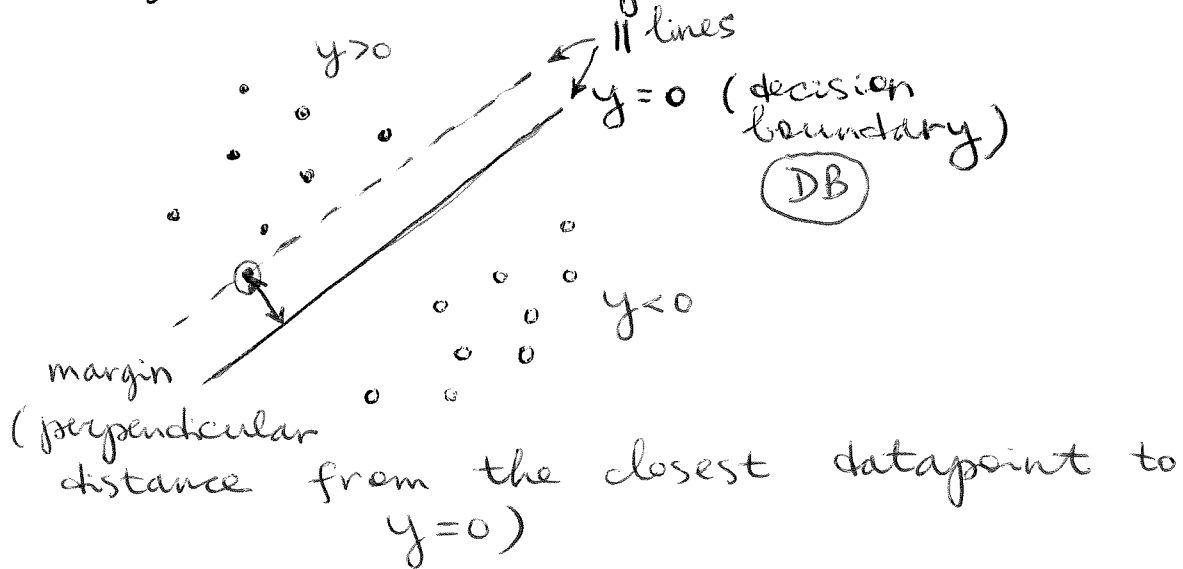 || lines
y>0
y = 0 (decision
boundary)
DB
y<0
margin
(perpendicular
distance from the closest datapoint to
y=0)